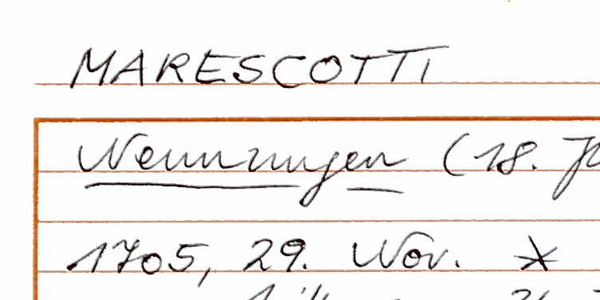 MARESCOTTI
Nenningen (18. J
1705, 29. Nov. *